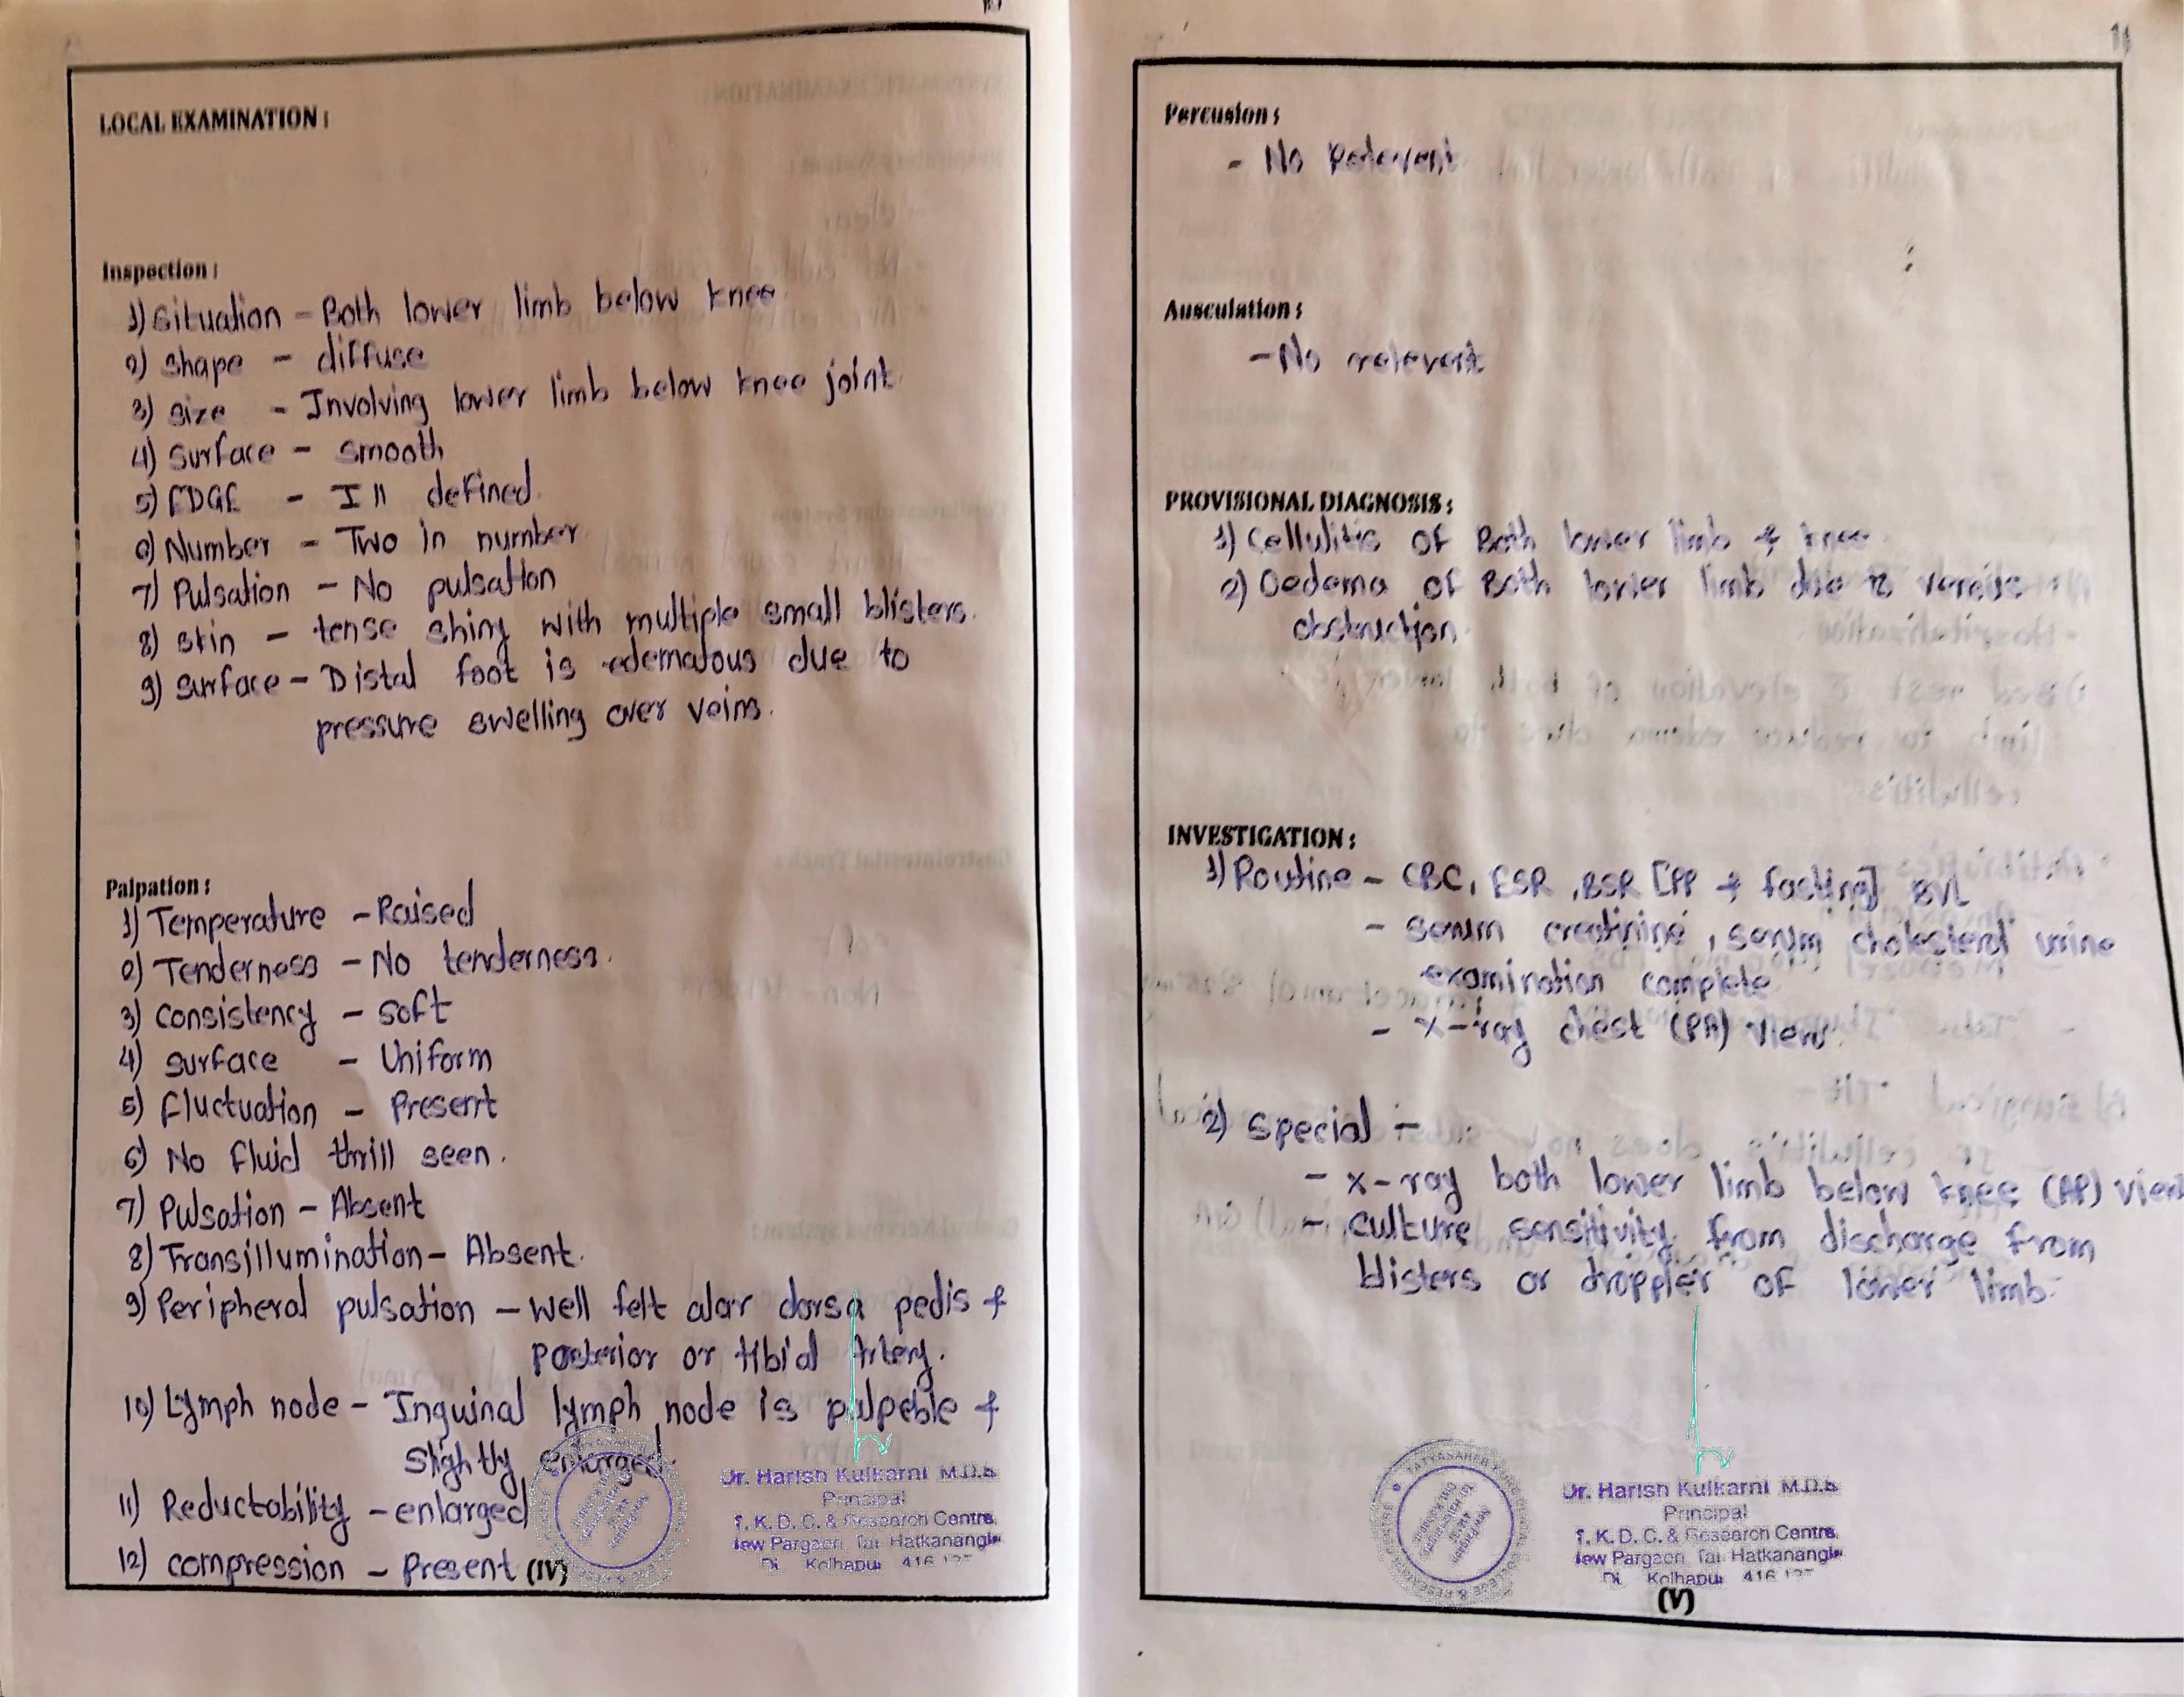 LOCAL EXAMINATION :
Inspection :
1) Situation - Both lower limb below knee
2) Shape - diffuse
3) Size - Involving lower limb below knee joint.
4) Surface - smooth
5) EDGE - Ill defined.
6) Number - Two in number
7) Pulsation - No pulsation
8) Skin - tense shiny with multiple small blisters.
9) Surface - Distal foot is edematous due to
pressure swelling over veins.
Palpation :
1) Temperature - Raised
2) Tenderness - No tenderness.
3) Consistency - Soft
4) Surface - Uniform
5) Fluctuation - Present
6) No fluid thrill seen.
7) Pulsation - Absent
8) Transillumination - Absent.
9) Peripheral pulsation - Well felt alar dorsa pedis &
Posterior or tibial Artery.
10) Lymph node - Inguinal lymph node is palpeble &
Slightly enlarged.
11) Reductability - enlarged
12) compression - Present (IV)
Dr. Harish Kulkarni M.D.S
Principal
T. K. D. C. & Research Centre,
New Pargaon, Tal Hatkanangle
Di. Kolhapur 416 137
Percusion :
- No Relevent
Ausculation :
- No relevent
PROVISIONAL DIAGNOSIS :
1) Cellulitis of Both lower limb & knee
2) Oedema of Both lower limb due to
obstruction.
INVESTIGATION :
1) Routine - CBC, ESR, BSR [PP & fasting]
- serum creatinine, serum cholesterol urine
examination complete
- X-ray chest (PA) view.
2) Special :-
- X-ray both lower limb below knee (AP) view
- culture sensitivity from discharge from
blisters or droppler of lower limb.
TATYASAHEB KORE DENTAL COLLEGE & RESEARCH CENTRE
Dr. Harish Kulkarni M.D.S
Principal
T. K. D. C. & Research Centre,
New Pargaon, Tal Hatkanangle
Di. Kolhapur 416 137
(V)